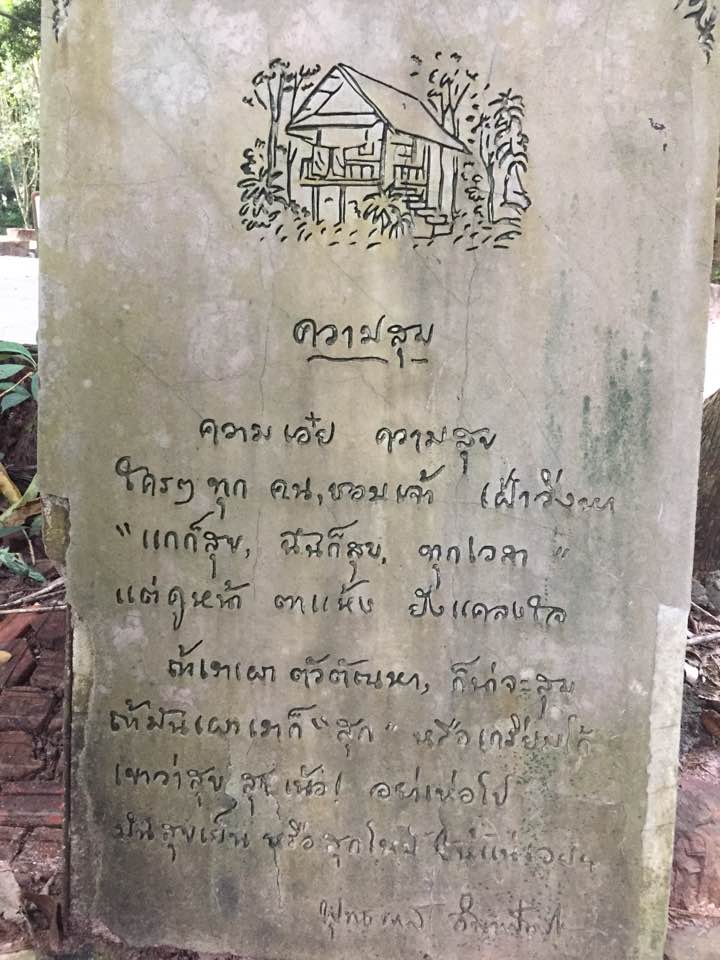 ความสุข
ความเอ๋ย ความสุข
ใครๆ ทุก คน, ชอบเจ้า เฝ้าวิ่งหา
"แกก็สุข, ฉันก็สุข, ทุกเวลา"
แต่ดูหน้า ตาแห้ง ยังแคลงใจ
ถ้าเราเผา ตัวตัณหา, ก็น่าจะสุข
ถ้ามันเผาเราก็ "สุก" หรือเกรียมได้
เขาว่าสุข สุขเน้อ! อย่าเห่อไป
มันสุขเย็น หรือสุกไหม้ ให้แน่เอย
พุทธทาส อินทปัญโญ